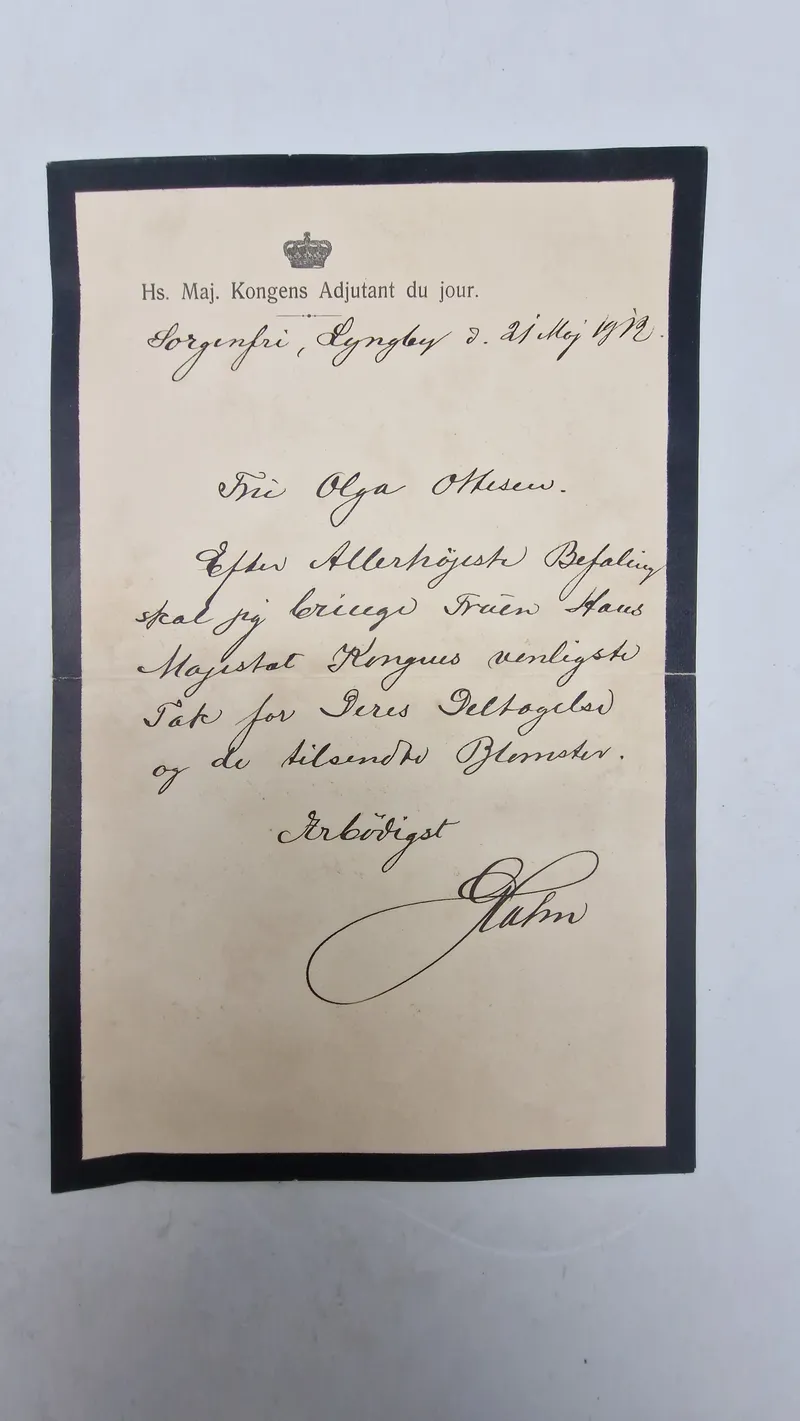 Hs. Maj. Kongens Adjutant du jour.
Sorgenfri, Lyngby d. 21 Maj 1912.
Fru Olga Ottesen.
Efter Allerhøjeste Befaling
skal jeg bringe Fruen Hans
Majestæt Kongens venligste
Tak for Deres Deltagelse
og de tilsendte Blomster.
Ærbødigst